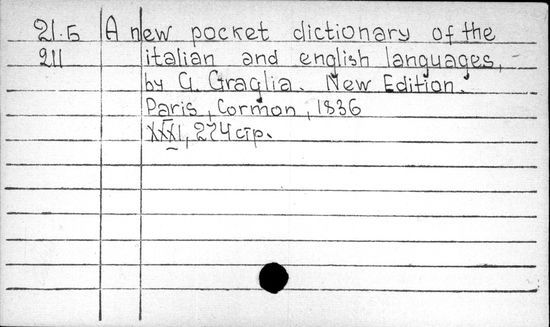 21.5 A new pocket dictionary of the
211 italian and english languages,
by G. Graglia. New Edition.
Paris, Cormon, 1836
XXXI, 274 стр.